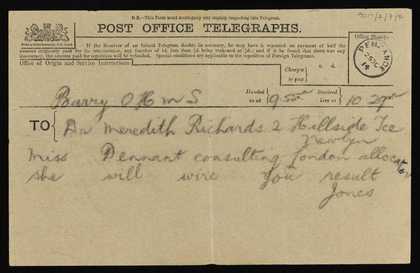 N.B.—This Form must accompany any enquiry respecting this Telegram.
POST OFFICE TELEGRAPHS.
If the Receiver of an Inland Telegram doubts its accuracy, he may have it repeated on payment of half the
amount originally paid for its transmission, any fraction of 1d. less than ½d. being reckoned as ½d.; and if it be found that there was any
inaccuracy, the amount paid for repetition will be refunded. Special conditions are applicable to the repetition of Foreign Telegrams.
Office of Origin and Service Instructions.
Charges
to pay
Office Stamp.
PENZANCE
14
Handed
in at
Received
here at
Barry OHMS
TO
Dr Meredith Richards 2 Hillside Tce
Newlyn
Miss Dennant consulting London allocation
she will wire you result
Jones